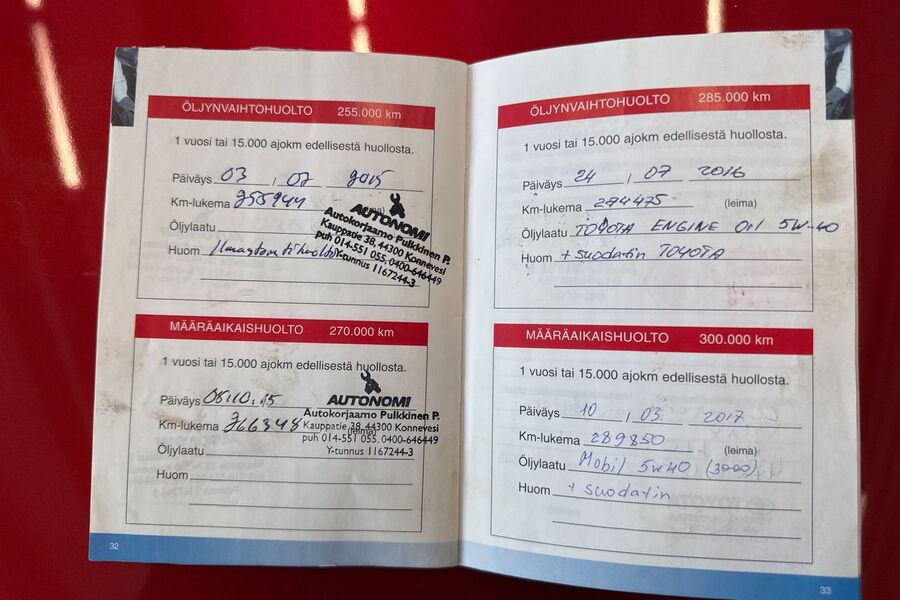 ÖLJYNVAIHTOHUOLTO 255.000 km
1 vuosi tai 15.000 ajokm edellisestä huollosta.
Päiväys 03 / 07 2015
Km-lukema 255944
Öljylaatu
Huom
AUTONOMI
Autokorjaamo Pulkkinen P.
Kauppatie 38, 44300 Konnevesi
puh 014-551 055, 0400-646449
Y-tunnus 1167244-3
MÄÄRÄAIKAISHUOLTO 270.000 km
1 vuosi tai 15.000 ajokm edellisestä huollosta.
Päiväys 08.10.15
Km-lukema 266348 (leima)
Öljylaatu
Huom
AUTONOMI
Autokorjaamo Pulkkinen P.
Kauppatie 38, 44300 Konnevesi
puh 014-551 055, 0400-646449
Y-tunnus 1167244-3
32
ÖLJYNVAIHTOHUOLTO 285.000 km
1 vuosi tai 15.000 ajokm edellisestä huollosta.
Päiväys 24 / 07 2016
Km-lukema 274475 (leima)
Öljylaatu TOYOTA ENGINE OIL 5W-40
Huom + suodatin TOYOTA
MÄÄRÄAIKAISHUOLTO 300.000 km
1 vuosi tai 15.000 ajokm edellisestä huollosta.
Päiväys 10 / 03. 2017
Km-lukema 289850 (leima)
Öljylaatu Mobil 5W40 (3000)
Huom + suodatin
33